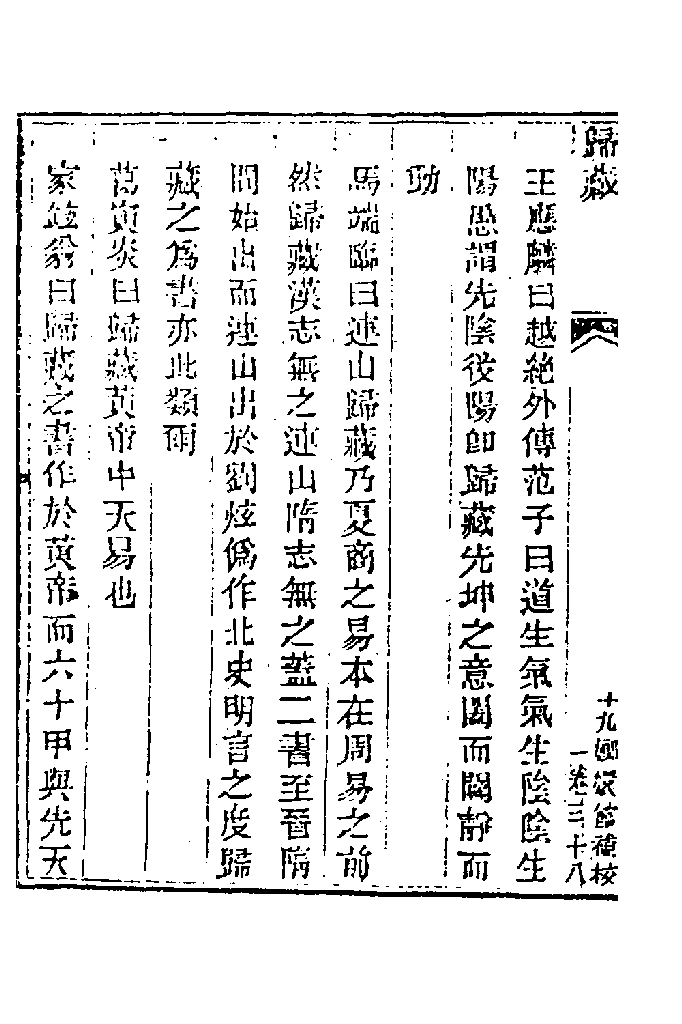 歸藏
十九瑯嬛館補校
一卷三十八
王應麟曰越絶外傳范子曰道生氣氣生陰陰生
陽愚謂先陰後陽卽歸藏先坤之意闔而闢靜而
動
馬端臨曰連山歸藏乃夏商之易本在周易之前
然歸藏漢志無之連山隋志無之蓋二書至晉隋
間始出而連山出於劉炫僞作北史明言之度歸
藏之爲書亦此類爾
葛寅炎曰歸藏黃帝中天易也
家鉉翁曰歸藏之書作於黃帝而六十甲與先天